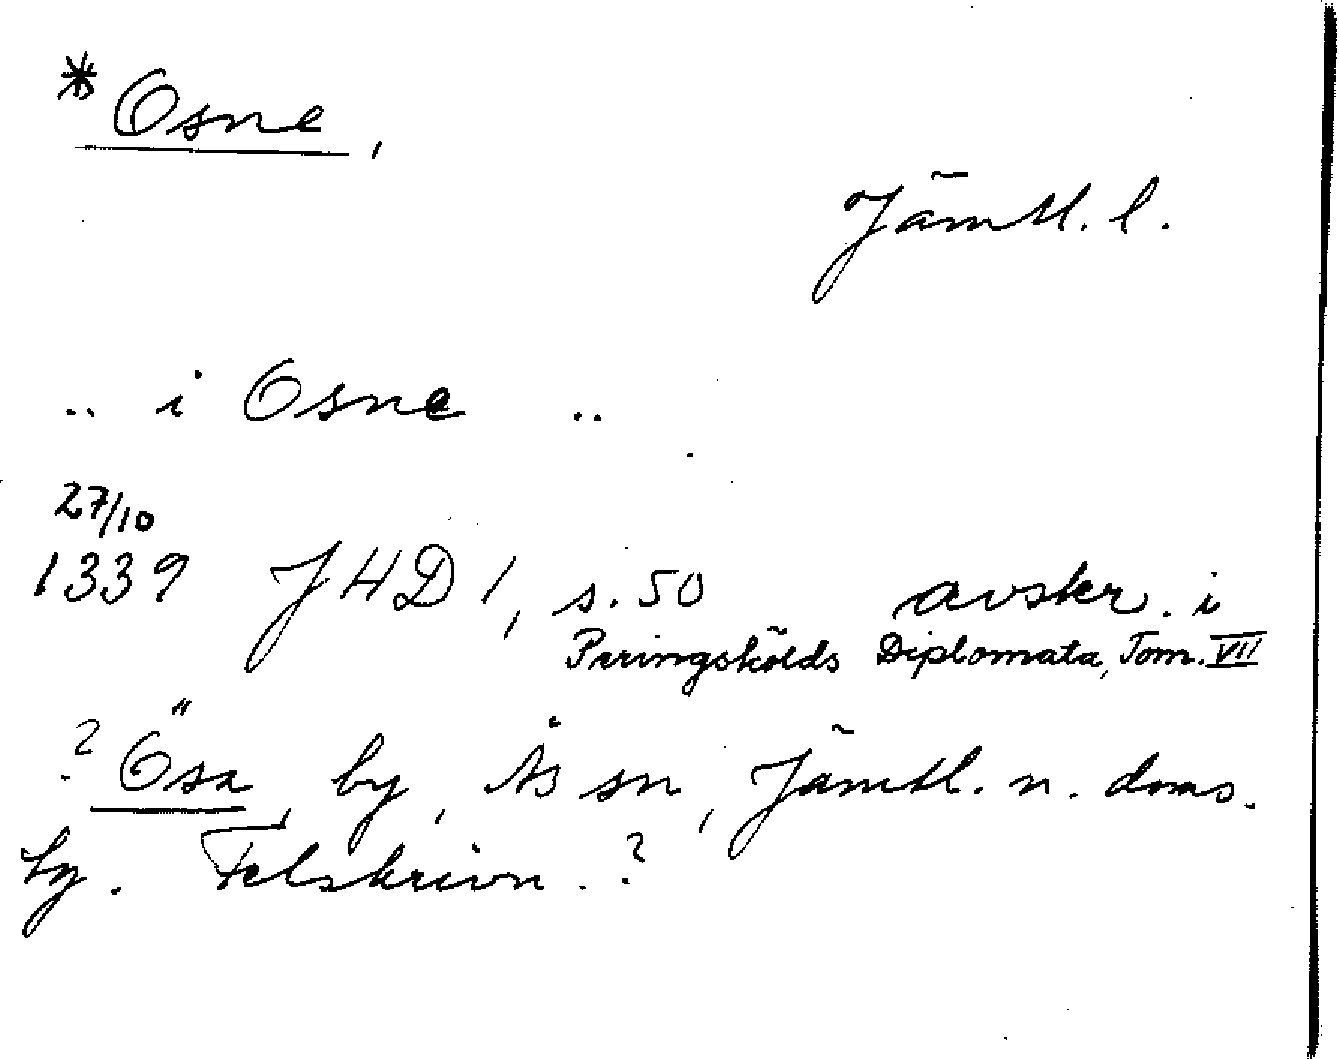 * Osne,
Jämtl. l.
.. i Osne ..
27/10
1339 JHD 1, s. 50 avskr. i
Peringskölds Diplomata, Tom. VII
? Ösa, by, Ås sn, Jämtl. n. doms.
hg. Felskrivn. ?